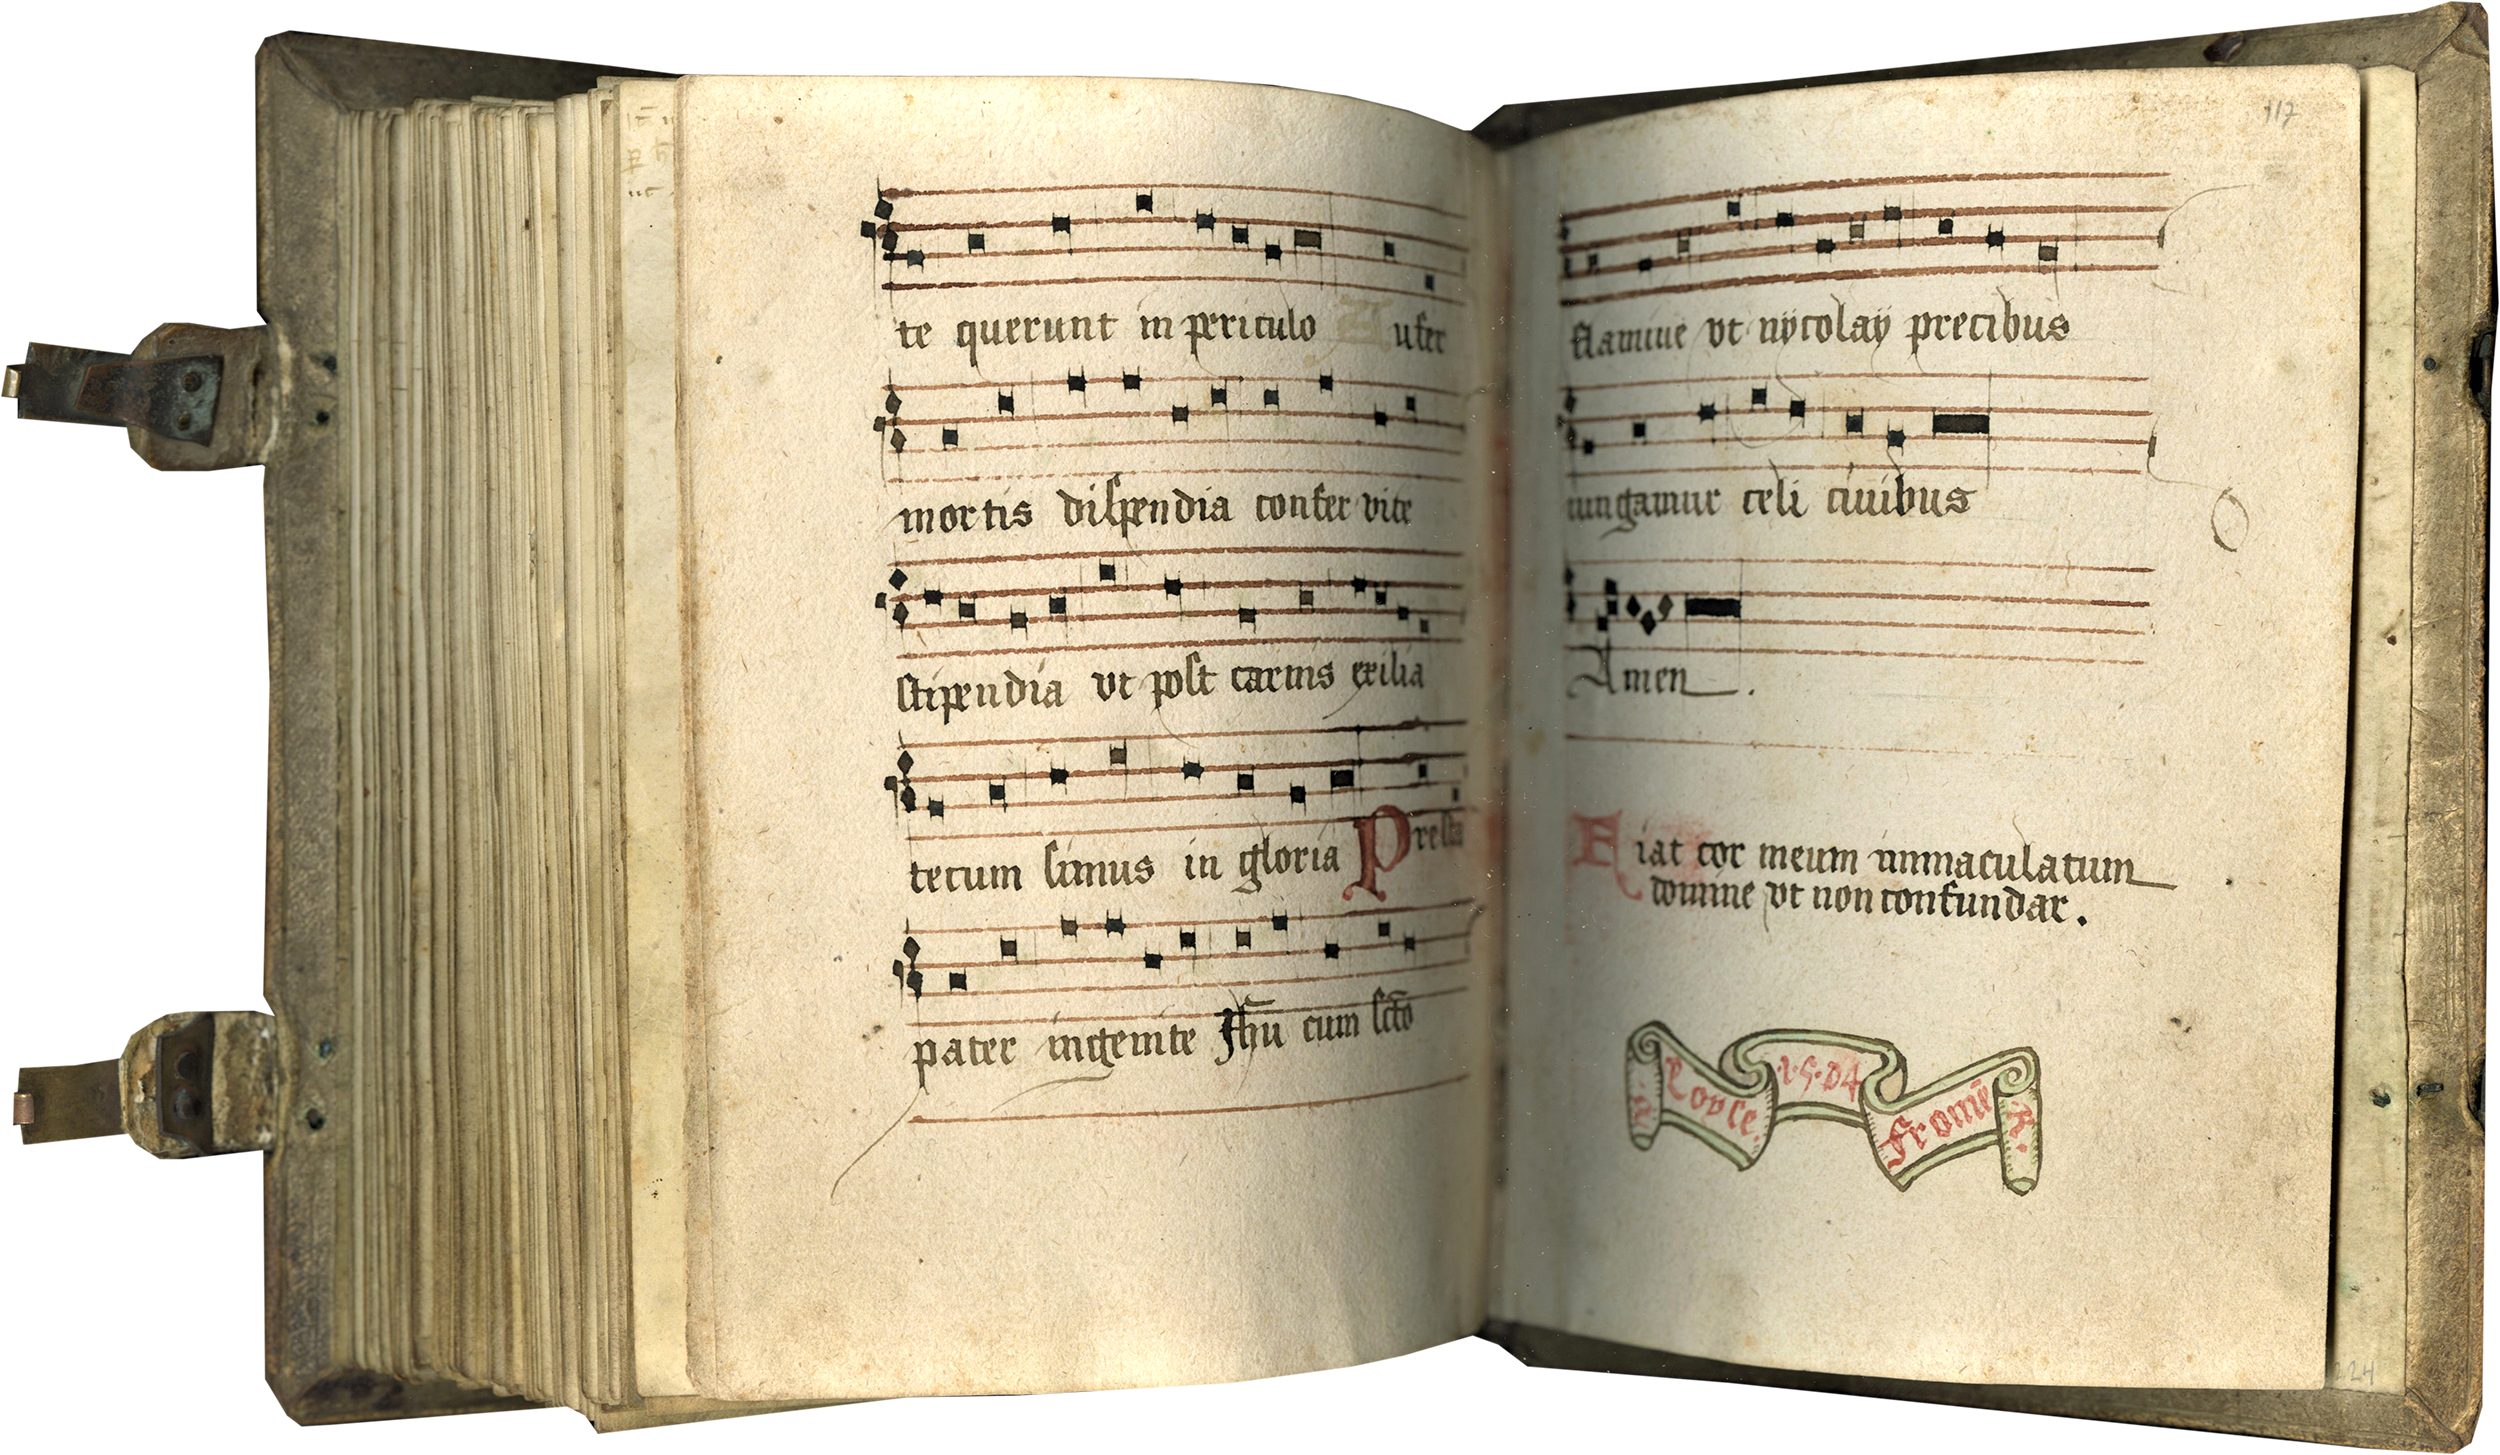 te querunt in periculo Aufer
mortis dispendia confer vite
stipendia vt post carnis exilia
tecum simus in gloria Presta
pater ingenite Jhū cum scto
117
flamine vt nycolaÿ precibus
iungamur celi ciuibus
Amen.
Fiat cor meum immaculatum
domine vt non confundar.
1·5·04
224